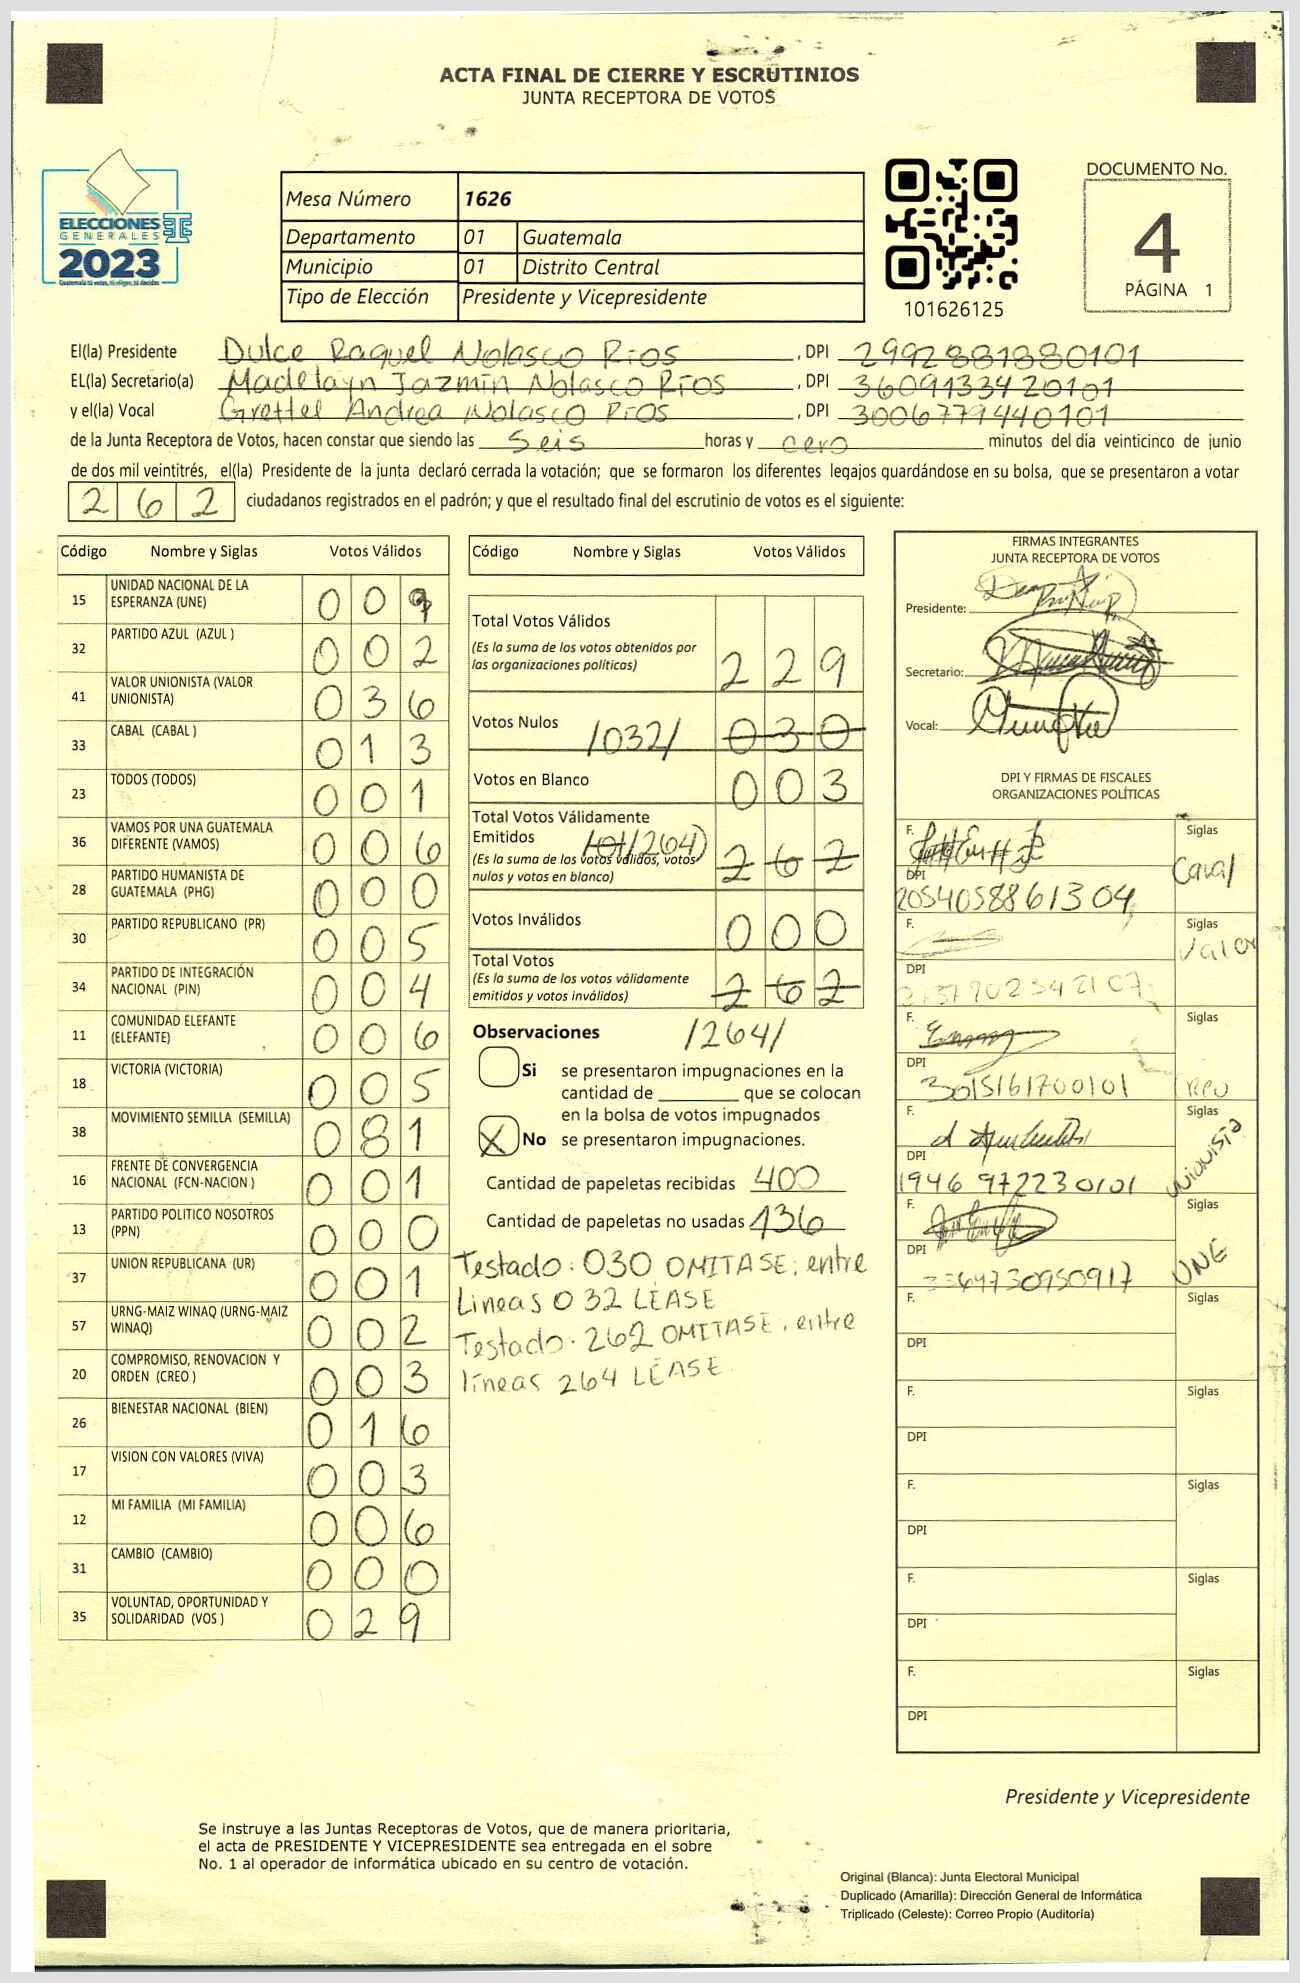 ACTA FINAL DE CIERRE Y ESCRUTINIOS
JUNTA RECEPTORA DE VOTOS
ELECCIONES
GENERALES
2023
Guatemala tú votas, tú eliges, tú decides
Mesa Número 1626
Departamento 01 Guatemala
Municipio 01 Distrito Central
Tipo de Elección Presidente y Vicepresidente
101626125
DOCUMENTO No.
4
PÁGINA 1
El(la) Presidente Dulce Raquel Nolasco Rios , DPI 2992881880101
EL(la) Secretario(a) Madelayn Jazmín Nolasco Ríos , DPI 3609133420101
y el(la) Vocal Grettel Andrea Nolasco Rios , DPI 3006779440101
de la Junta Receptora de Votos, hacen constar que siendo las seis horas y cero minutos del día veinticinco de junio
de dos mil veintitrés, el(la) Presidente de la junta declaró cerrada la votación; que se formaron los diferentes legajos guardándose en su bolsa, que se presentaron a votar
262 ciudadanos registrados en el padrón; y que el resultado final del escrutinio de votos es el siguiente:
Código Nombre y Siglas Votos Válidos
15 UNIDAD NACIONAL DE LA
ESPERANZA (UNE) 0 0 9
32 PARTIDO AZUL (AZUL ) 0 0 2
41 VALOR UNIONISTA (VALOR
UNIONISTA) 0 3 6
33 CABAL (CABAL ) 0 1 3
23 TODOS (TODOS) 0 0 1
36 VAMOS POR UNA GUATEMALA
DIFERENTE (VAMOS) 0 0 6
28 PARTIDO HUMANISTA DE
GUATEMALA (PHG) 0 0 0
30 PARTIDO REPUBLICANO (PR) 0 0 5
34 PARTIDO DE INTEGRACIÓN
NACIONAL (PIN) 0 0 4
11 COMUNIDAD ELEFANTE
(ELEFANTE) 0 0 6
18 VICTORIA (VICTORIA) 0 0 5
38 MOVIMIENTO SEMILLA (SEMILLA) 0 8 1
16 FRENTE DE CONVERGENCIA
NACIONAL (FCN-NACION ) 0 0 1
13 PARTIDO POLITICO NOSOTROS
(PPN) 0 0 0
37 UNION REPUBLICANA (UR) 0 0 1
57 URNG-MAIZ WINAQ (URNG-MAIZ
WINAQ) 0 0 2
20 COMPROMISO, RENOVACION Y
ORDEN (CREO ) 0 0 3
26 BIENESTAR NACIONAL (BIEN) 0 1 6
17 VISION CON VALORES (VIVA) 0 0 3
12 MI FAMILIA (MI FAMILIA) 0 0 6
31 CAMBIO (CAMBIO) 0 0 0
35 VOLUNTAD, OPORTUNIDAD Y
SOLIDARIDAD (VOS ) 0 2 9
Código Nombre y Siglas Votos Válidos
Total Votos Válidos
(Es la suma de los votos obtenidos por
las organizaciones políticas) 2 2 9
Votos Nulos /032/ 0 3 0
Votos en Blanco 0 0 3
Total Votos Válidamente
Emitidos /264/
(Es la suma de los votos válidos, votos
nulos y votos en blanco) 2 6 2
Votos Inválidos 0 0 0
Total Votos
(Es la suma de los votos válidamente
emitidos y votos inválidos) 2 6 2
Observaciones /264/
Si se presentaron impugnaciones en la
cantidad de ________ que se colocan
en la bolsa de votos impugnados
X No se presentaron impugnaciones.
Cantidad de papeletas recibidas 400
Cantidad de papeletas no usadas 136
Testado: 030 OMITASE; entre
Lineas 032 LEASE
Testado. 262 OMITASE. entre
líneas 264 LEASE.
FIRMAS INTEGRANTES
JUNTA RECEPTORA DE VOTOS
Presidente:
Secretario:
Vocal:
DPI Y FIRMAS DE FISCALES
ORGANIZACIONES POLÍTICAS
F. Siglas
DPI Caval
2054058861304
F. Siglas
DPI Valor
F. Siglas
DPI
3015161700101
F. Siglas
DPI unionista
1946 972230101
F. Siglas
DPI UNE
3364730950917
F. Siglas
DPI
F. Siglas
DPI
F. Siglas
DPI
F. Siglas
DPI
F. Siglas
DPI
Presidente y Vicepresidente
Se instruye a las Juntas Receptoras de Votos, que de manera prioritaria,
el acta de PRESIDENTE Y VICEPRESIDENTE sea entregada en el sobre
No. 1 al operador de informática ubicado en su centro de votación.
Original (Blanca): Junta Electoral Municipal
Duplicado (Amarilla): Dirección General de Informática
Triplicado (Celeste): Correo Propio (Auditoría)